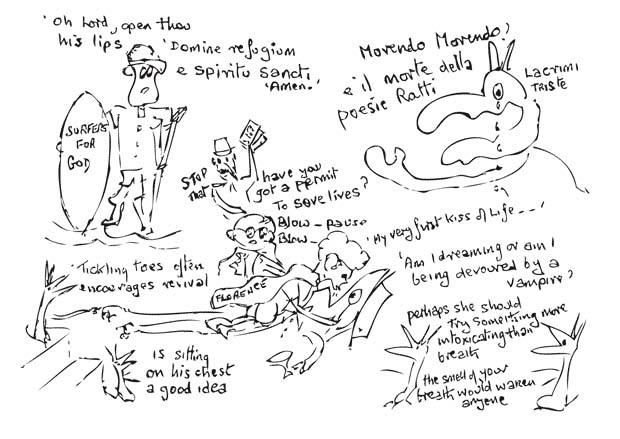 'Oh Lord, open thou
his lips
'Domine refugium
e spiritu sancti
'Amen.'
Morendo Morendo?
e il morte della
poesie Ratti
LACRIMI
TRISTE
SURFERS
FOR
GOD
STOP
that
have you
got a permit
To save lives?
Blow - pause
Blow -
'My very first kiss of Life - - -'
'Am I dreaming or am I
being devoured by a
vampire?
Tickling toes often
encourages revival
FLORENCE
is sitting
on his chest
a good idea
perhaps she should
Try something more
intoxicating than
breath
the smell of your
breath would waken
anyone